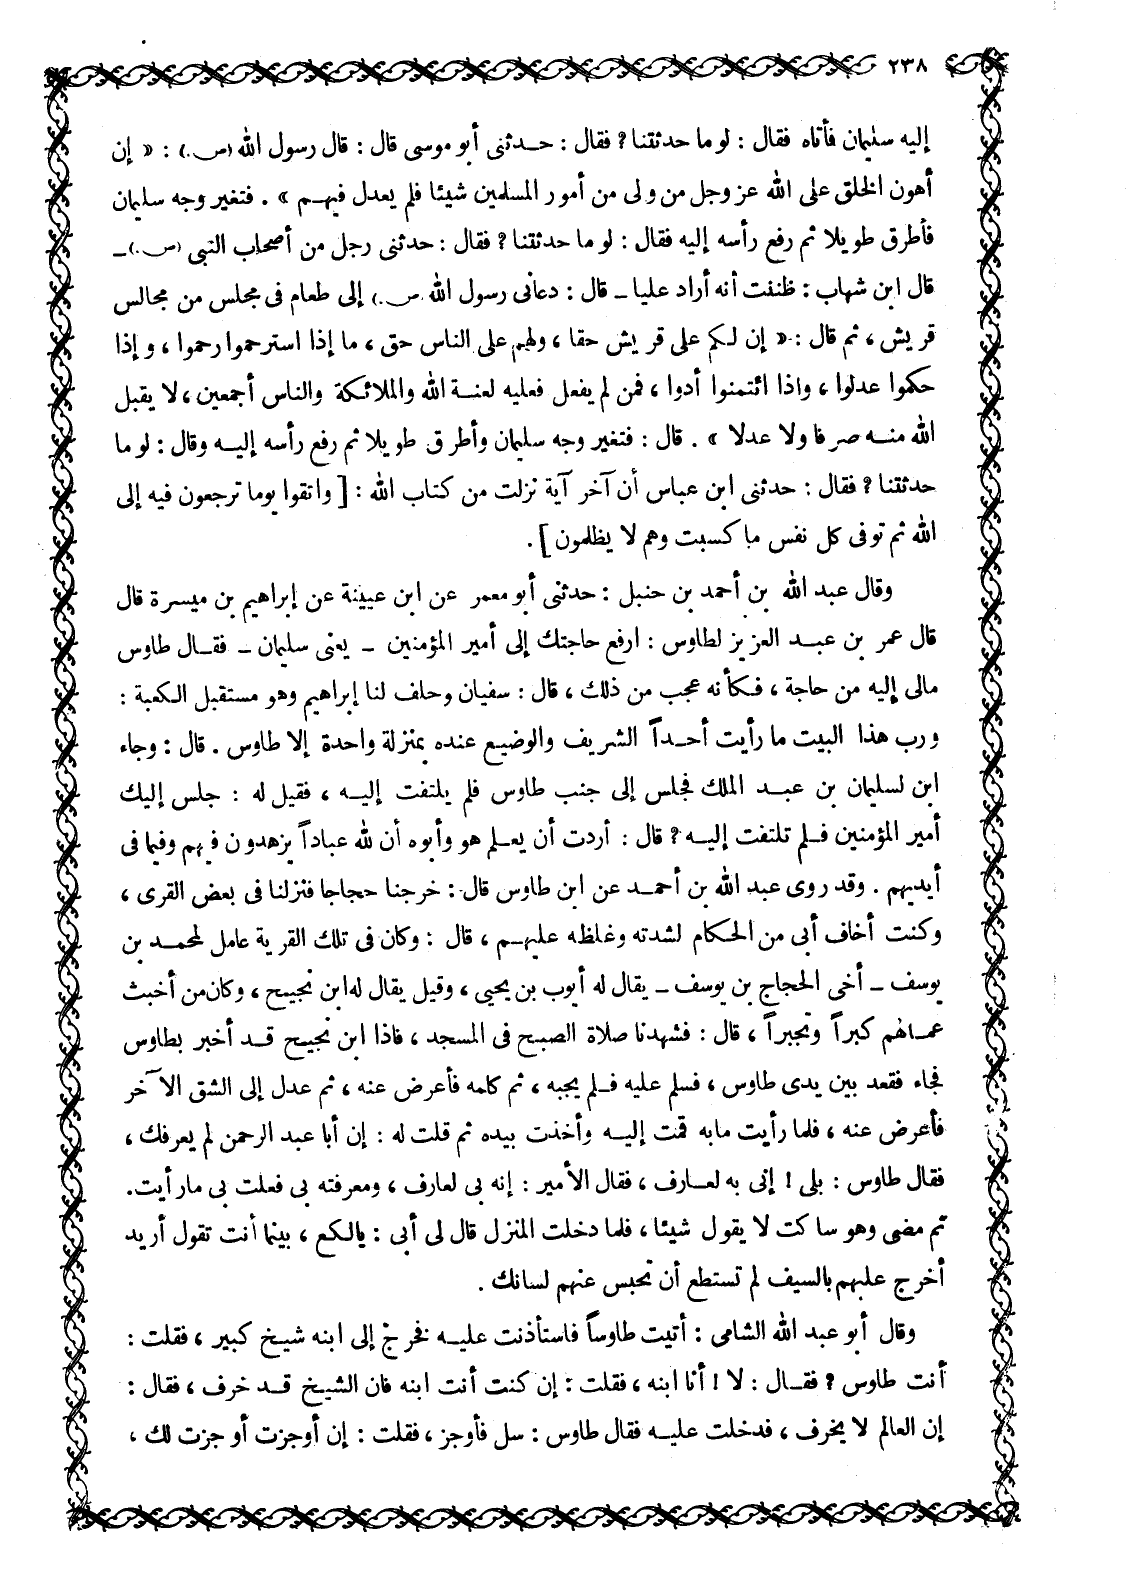 ٢٣٨
إليه سليمان فأتاه فقال : لو ما حدثتنا ? فقال : حدثنى أبو موسى قال : قال رسول الله (ص.) : « إن
أهون الخلق على الله عز وجل من ولى من أمور المسلمين شيئا فلم يعدل فيهم » . فتغير وجه سليمان
فأطرق طويلا ثم رفع رأسه إليه فقال : لو ما حدثتنا ? فقال : حدثنى رجل من أصحاب النبى (ص.) ـ
قال ابن شهاب : ظننت أنه أراد عليا ـ قال : دعانى رسول الله (ص.) إلى طعام فى مجلس من مجالس
قريش ، ثم قال : « إن لكم على قريش حقا ، ولهم على الناس حق ، ما إذا استرحموا رحموا ، وإذا
حكموا عدلوا ، واذا ائتمنوا أدوا ، فمن لم يفعل فعليه لعنة الله والملائكة والناس أجمعين ، لا يقبل
الله منه صرفا ولا عدلا » . قال : فتغير وجه سليمان وأطرق طويلا ثم رفع رأسه إليه وقال : لو ما
حدثتنا ? فقال : حدثنى ابن عباس أن آخر آية نزلت من كتاب الله : [ واتقوا يوما ترجعون فيه إلى
الله ثم توفى كل نفس ما كسبت وهم لا يظلمون ] .
وقال عبد الله بن أحمد بن حنبل : حدثنى أبو معمر عن ابن عيينة عن إبراهيم بن ميسرة قال
قال عمر بن عبد العزيز لطاوس : ارفع حاجتك إلى أمير المؤمنين ـ يعنى سليمان ـ فقال طاوس
مالى إليه من حاجة ، فكأنه عجب من ذلك ، قال : سفيان وحلف لنا إبراهيم وهو مستقبل الكعبة :
ورب هذا البيت ما رأيت أحداً الشريف والوضيع عنده بمنزلة واحدة إلا طاوس . قال : وجاء
ابن لسليمان بن عبد الملك فجلس إلى جنب طاوس فلم يلتفت إليه ، فقيل له : جلس إليك
أمير المؤمنين فلم تلتفت إليه ? قال : أردت أن يعلم هو وأبوه أن لله عباداً يزهدون فيهم وفيما فى
أيديهم . وقد روى عبد الله بن أحمد عن ابن طاوس قال : خرجنا حجاجا فنزلنا فى بعض القرى ،
وكنت أخاف أبى من الحكام لشدته وغلظه عليهم ، قال : وكان فى تلك القرية عامل لمحمد بن
يوسف ـ أخى الحجاج بن يوسف ـ يقال له أيوب بن يحيى ، وقيل يقال له ابن نجيح ، وكان من أخبث
عمالهم كبراً وتجبراً ، قال : فشهدنا صلاة الصبح فى المسجد ، فاذا ابن نجيح قد أخبر بطاوس
فجاء فقعد بين يدى طاوس ، فسلم عليه فلم يجبه ، ثم كلمه فأعرض عنه ، ثم عدل إلى الشق الآخر
فأعرض عنه ، فلما رأيت مابه قمت إليه وأخذت بيده ثم قلت له : إن أبا عبد الرحمن لم يعرفك ،
فقال طاوس : بلى ! إنى به لعارف ، فقال الأمير : إنه بى لعارف ، ومعرفته بى فعلت بى مارأيت .
ثم مضى وهو ساكت لا يقول شيئا ، فلما دخلت المنزل قال لى أبى : يالكع ، بينما أنت تقول أريد
أخرج عليهم بالسيف لم تستطع أن تحبس عنهم لسانك .
وقال أبو عبد الله الشامى : أتيت طاوساً فاستأذنت عليه فخرج إلى ابنه شيخ كبير ، فقلت :
أنت طاوس ? فقال : لا ! أنا ابنه ، فقلت : إن كنت أنت ابنه فان الشيخ قد خرف ، فقال :
إن العالم لا يخرف ، فدخلت عليه فقال طاوس : سل فأوجز ، فقلت : إن أوجزت أوجزت لك ،